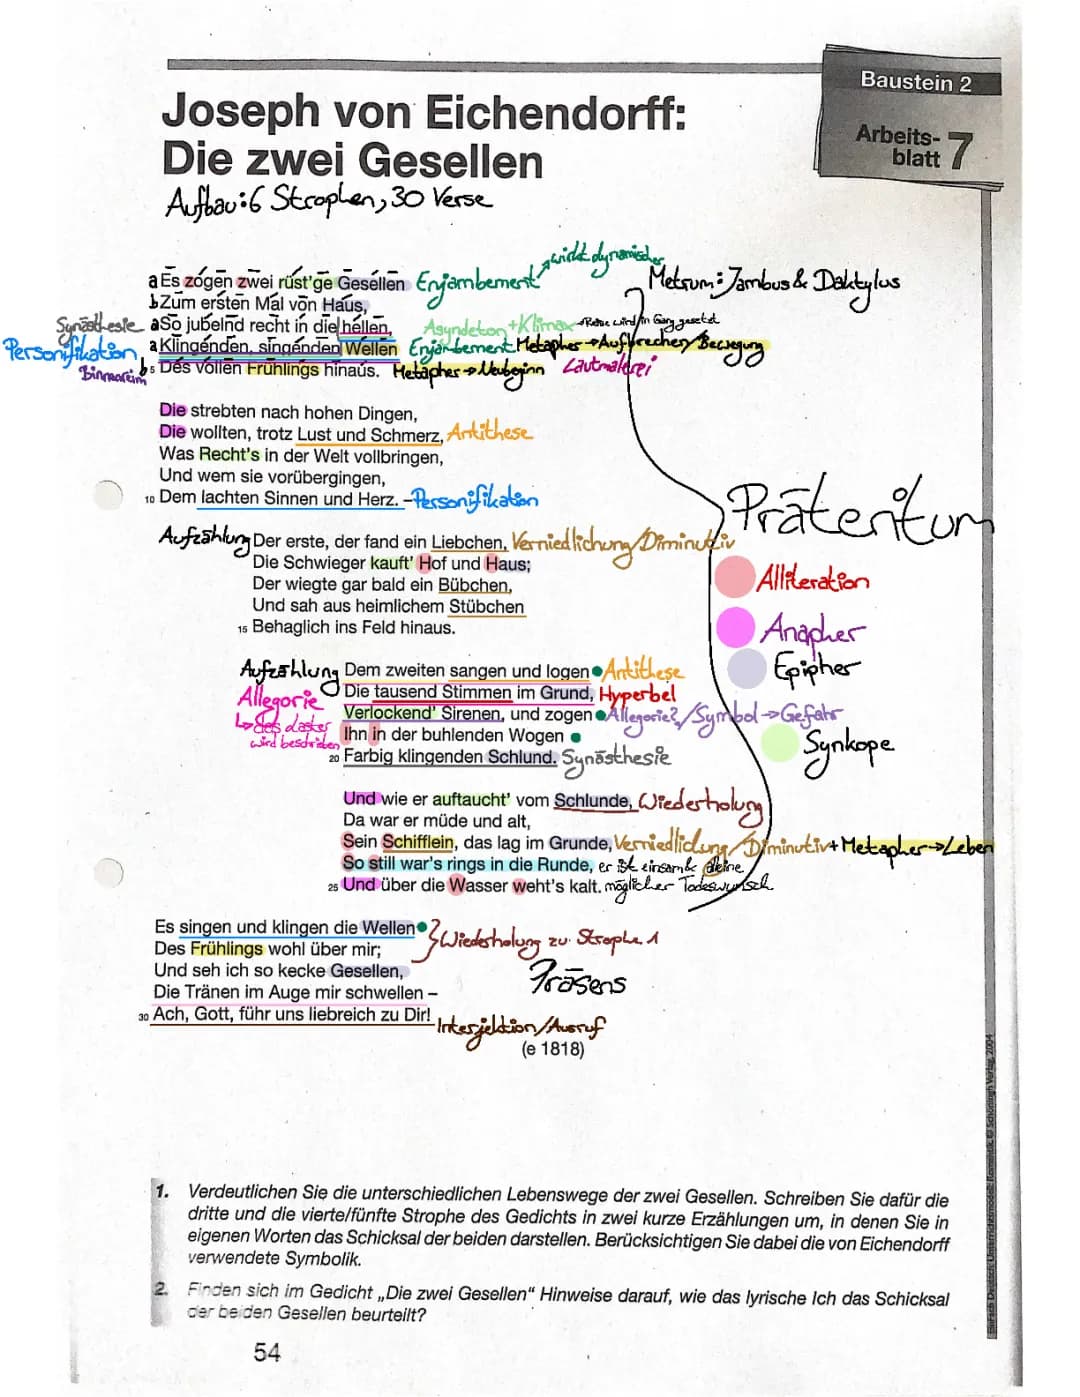 Baustein 2
Arbeits-
blatt 7
Joseph von Eichendorff:
Die zwei Gesellen
Aufbau: 6 Strophen, 30 Verse
wirkt dynamischer
a Es zogen zwei rüst'ge Gesellen Enjambement
Metrum: Jambus & Daktylus
b Zum ersten Mal von Haus,
Synästhesie a So jubelnd recht in die hellen, Asyndeton + Klimax → Reise wird in Gang gesetzt
Personifikation a Klingenden, singenden Wellen Enjambement Metapher → Aufbrechen/Bewegung
Binnenreim b 5 Des vollen Frühlings hinaus. Metapher → Neubeginn Lautmalerei
Die strebten nach hohen Dingen,
Die wollten, trotz Lust und Schmerz, Antithese
Was Recht's in der Welt vollbringen,
Und wem sie vorübergingen,
10 Dem lachten Sinnen und Herz. – Personifikation
Präteritum
Aufzählung Der erste, der fand ein Liebchen, Verniedlichung/Diminutiv
Die Schwieger kauft' Hof und Haus;
Der wiegte gar bald ein Bübchen,
Und sah aus heimlichem Stübchen
15 Behaglich ins Feld hinaus.
Alliteration
Anapher
Epipher
Synkope
Aufzählung Dem zweiten sangen und logen Antithese
Allegorie Die tausend Stimmen im Grund, Hyperbel
Verlockend' Sirenen, und zogen Allegorie?/Symbol → Gefahr
↳ das laster Ihn in der buhlenden Wogen
wird beschrieben
20 Farbig klingenden Schlund. Synästhesie
Und wie er auftaucht' vom Schlunde, Wiederholung
Da war er müde und alt,
Sein Schifflein, das lag im Grunde, Verniedlichung/Diminutiv + Metapher → Leben
So still war's rings in die Runde, er ist einsam & alleine
25 Und über die Wasser weht's kalt. möglicher Todeswunsch
Es singen und klingen die Wellen
Des Frühlings wohl über mir; } Wiederholung zu Strophe 1
Und seh ich so kecke Gesellen,
Präsens
Die Tränen im Auge mir schwellen –
30 Ach, Gott, führ uns liebreich zu Dir! Interjektion/Ausruf
(e 1818)
1. Verdeutlichen Sie die unterschiedlichen Lebenswege der zwei Gesellen. Schreiben Sie dafür die
dritte und die vierte/fünfte Strophe des Gedichts in zwei kurze Erzählungen um, in denen Sie in
eigenen Worten das Schicksal der beiden darstellen. Berücksichtigen Sie dabei die von Eichendorff
verwendete Symbolik.
2. Finden sich im Gedicht „Die zwei Gesellen“ Hinweise darauf, wie das lyrische Ich das Schicksal
der beiden Gesellen beurteilt?
54
EinFach Deutsch: Unterrichtsmodell: Romantik, © Schöningh Verlag, 2004